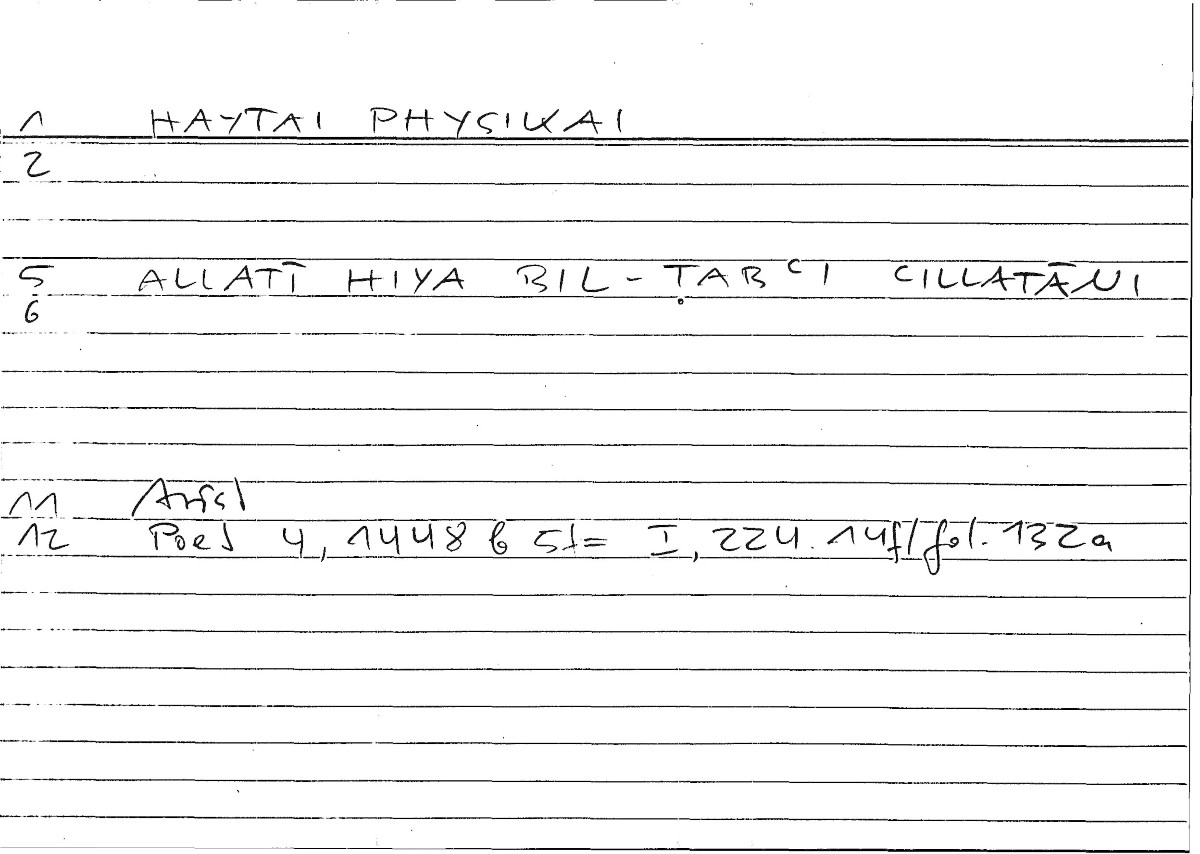 1 HAYTAI PHYSIKAI
2
5 ALLATĪ HIYA BIL-ṬABʿI ʿILLATĀNI
6
11 Arist
12 Poet 4, 1448 b 5f= I, 224.14f/fol. 132a